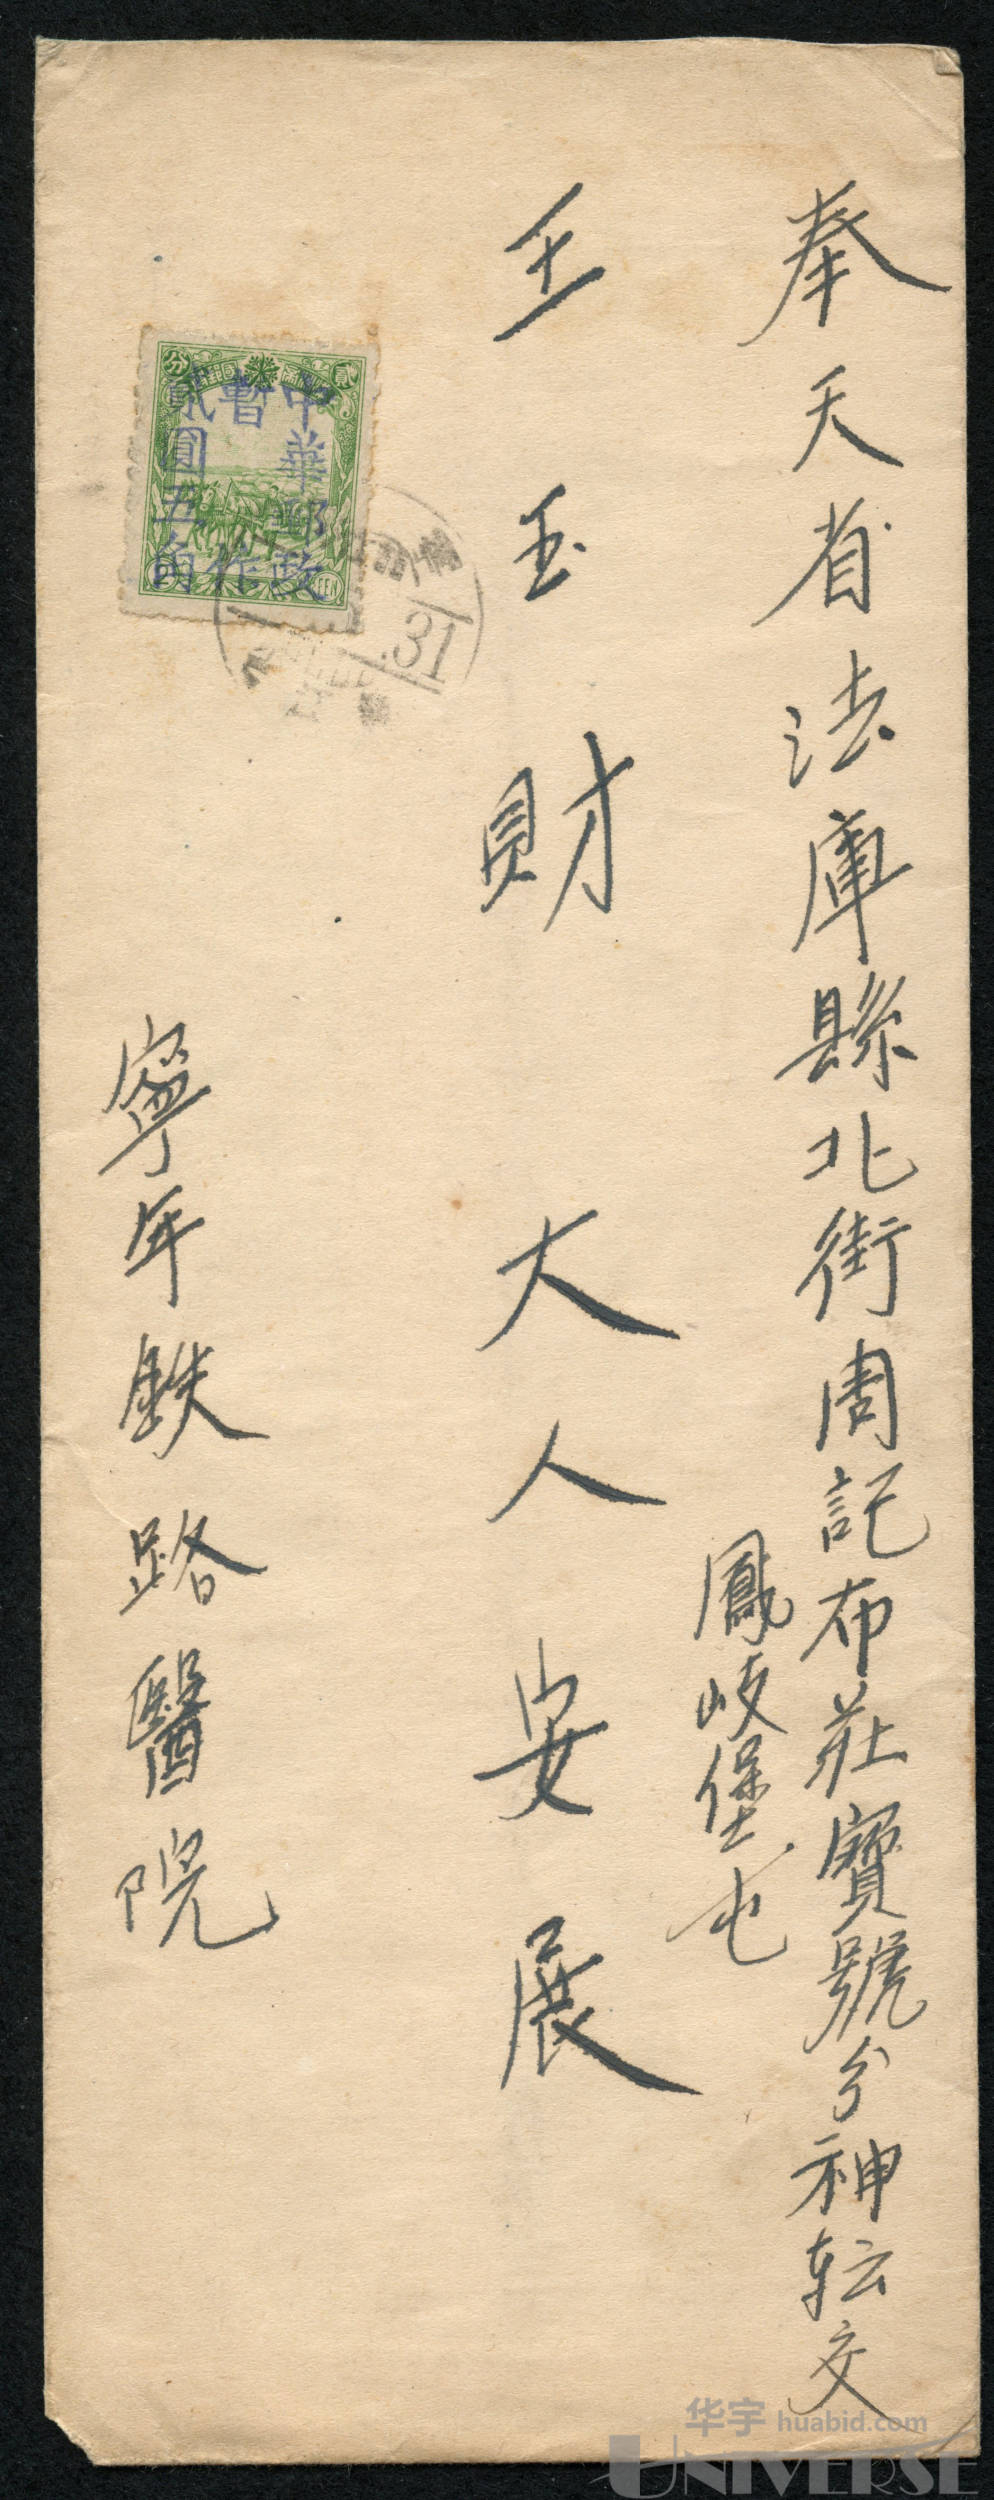 奉天省法庫縣北街周記布莊寶號分神転交
鳳岐堡屯
王玉財大人安展
寧年鉄路醫院
中華郵政
暫作
貳圓五角
貳
分
FEN
31
华宇 huabid.com
UNIVERSE